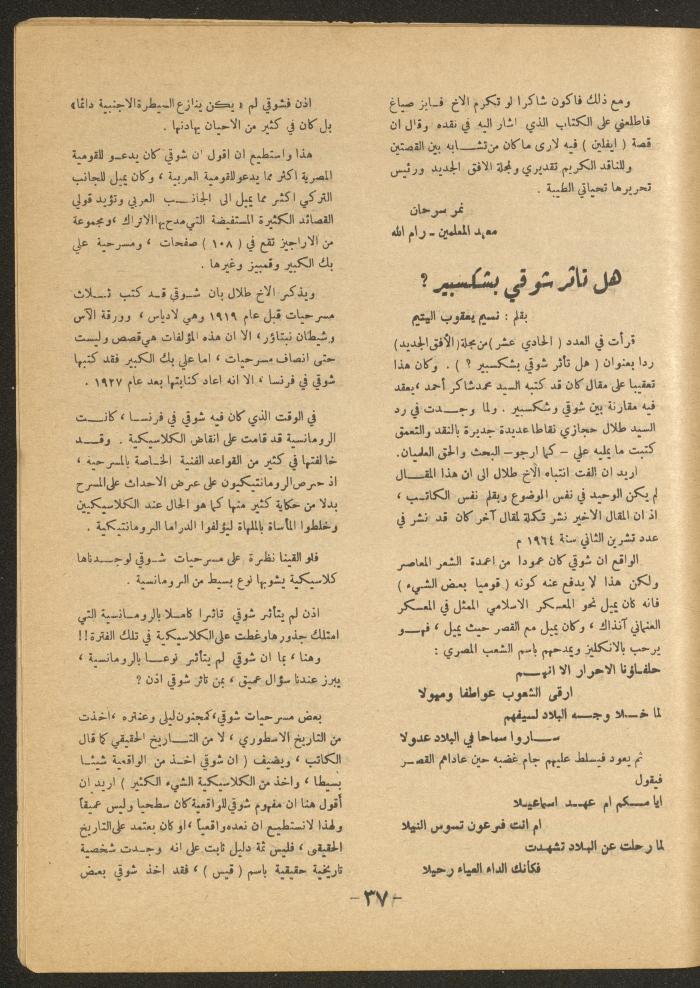 ومع ذلك فاكون شاكرا لو تكرم الاخ فايز صياغ
فاطلعني على الكتاب الذي اشار اليه في نقده وقال ان
قصة ( ايفلين ) فيه لارى ما كان من تشابه بين القصتين
وللناقد الكريم تقديري ولمجلة الافق الجديد ورئيس
تحريرها تحياتي الطيبة .
نمر سرحان
معهد المعلمين - رام الله
هل تأثر شوقي بشكسبير ؟
بقلم : نسيم يعقوب اليتيم
قرأت في العدد ( الحادي عشر ) من مجلة ( الأفق الجديد )
ردا بعنوان ( هل تأثر شوقي بشكسبير ؟ ) . وكان هذا
تعقيبا على مقال كان قد كتبه السيد محمد شاكر أحمد ، يعقد
فيه مقارنة بين شوقي وشكسبير . ولما وجدت في رد
السيد طلال حجازي نقاطا عديدة جديرة بالنقد والتعمق
كتبت ما يمليه علي – كما ارجو – البحث والحق العلميان.
اريد ان الفت انتباه الأخ طلال الى ان هذا المقال
لم يكن الوحيد في نفس الموضوع وبقلم نفس الكاتب ،
اذ ان المقال الأخير نشر تكملة لمقال آخر كان قد نشر في
عدد تشرين الثاني سنة ١٩٦٤ م
الواقع ان شوقي كان عمودا من اعمدة الشعر المعاصر
ولكن هذا لا يدفع عنه كونه ( قوميا بعض الشيء )
فانه كان يميل نحو المعسكر الاسلامي الممثل في المعسكر
العثماني آنذاك ، وكان يميل مع القصر حيث يميل ، فهو
يرحب بالانكليز ويمدحهم باسم الشعب المصري :
حلفاؤنا الاحرار الا انهم
ارقى الشعوب عواطفا وميولا
لما خلا وجه البلاد لسيفهم
ساروا سماحا في البلاد عدولا
ثم يعود فيسلط عليهم جام غضبه حين عاداهم القصر
فيقول
ايامكم ام عهد اسماعيلا
ام انت فرعون تسوس النيلا
لما رحلت عن البلاد تشهدت
فكأنك الداء العياء رحيلا
اذن فشوقي لم « يكن ينازع السيطرة الاجنبية دائما »
بل كان في كثير من الاحيان يهادنها .
هذا واستطيع ان اقول ان شوقي كان يدعو للقومية
المصرية اكثر مما يدعو للقومية العربية ، وكان يميل للجانب
التركي اكثر مما يميل الى الجانب العربي وتؤيد قولي
القصائد الكثيرة المستفيضة التي مدح بها الاتراك ، ومجموعة
من الاراجيز تقع في ( ١٠٨ ) صفحات ، ومسرحية علي
بك الكبير وقمبيز وغيرها .
ويذكر الاخ طلال بان شوقي قد كتب ثلاث
مسرحيات قبل عام ١٩١٩ وهي لادياس ، وورقة الآس
وشيطان نبتاؤر ، الا ان هذه المؤلفات هي قصص وليست
حتى انصاف مسرحيات ، اما علي بك الكبير فقد كتبها
شوقي في فرنسا ، الا انه اعاد كتابتها بعد عام ١٩٢٧ .
في الوقت الذي كان فيه شوقي في فرنسا ، كانت
الرومانسية قد قامت على انقاض الكلاسيكية . وقد
خالفتها في كثير من القواعد الفنية الخاصة بالمسرحية ،
اذ حرص الرومانتيكيون على عرض الاحداث على المسرح
بدلا من حكاية كثير منها كما هو الحال عند الكلاسيكيين
وخلطوا المأساة بالملهاة ليؤلفوا الدراما الرومانتيكية .
فلو القينا نظرة على مسرحيات شوقي لوجدناها
كلاسيكية يشوبها نوع بسيط من الرومانسية .
اذن لم يتأثر شوقي تاثرا كاملا بالرومانسية التي
امتلك جذورها وغطت على الكلاسيكية في تلك الفترة !!
وهنا ، بما ان شوقي لم يتأثر نوعا بالرومانسية ،
يبرز عندنا سؤال عميق ، بمن تاثر شوقي اذن ؟
بعض مسرحيات شوقي ، كمجنون ليلى وعنتره ، اخذت
من التاريخ الاسطوري ، لا من التاريخ الحقيقي كما قال
الكاتب ، ويضيف ( ان شوقي اخذ من الواقعية شيئا
بسيطا ، واخذ من الكلاسيكية الشيء الكثير ) اريد ان
أقول هنا ان مفهوم شوقي للواقعية كان سطحيا وليس عميقاً
ولهذا لانستطيع ان نعده واقعياً ، او كان يعتمد على التاريخ
الحقيقي ، فليس ثمة دليل ثابت على انه وجدت شخصية
تاريخية حقيقية باسم ( قيس ) ، فقد اخذ شوقي بعض
- ٣٧ -